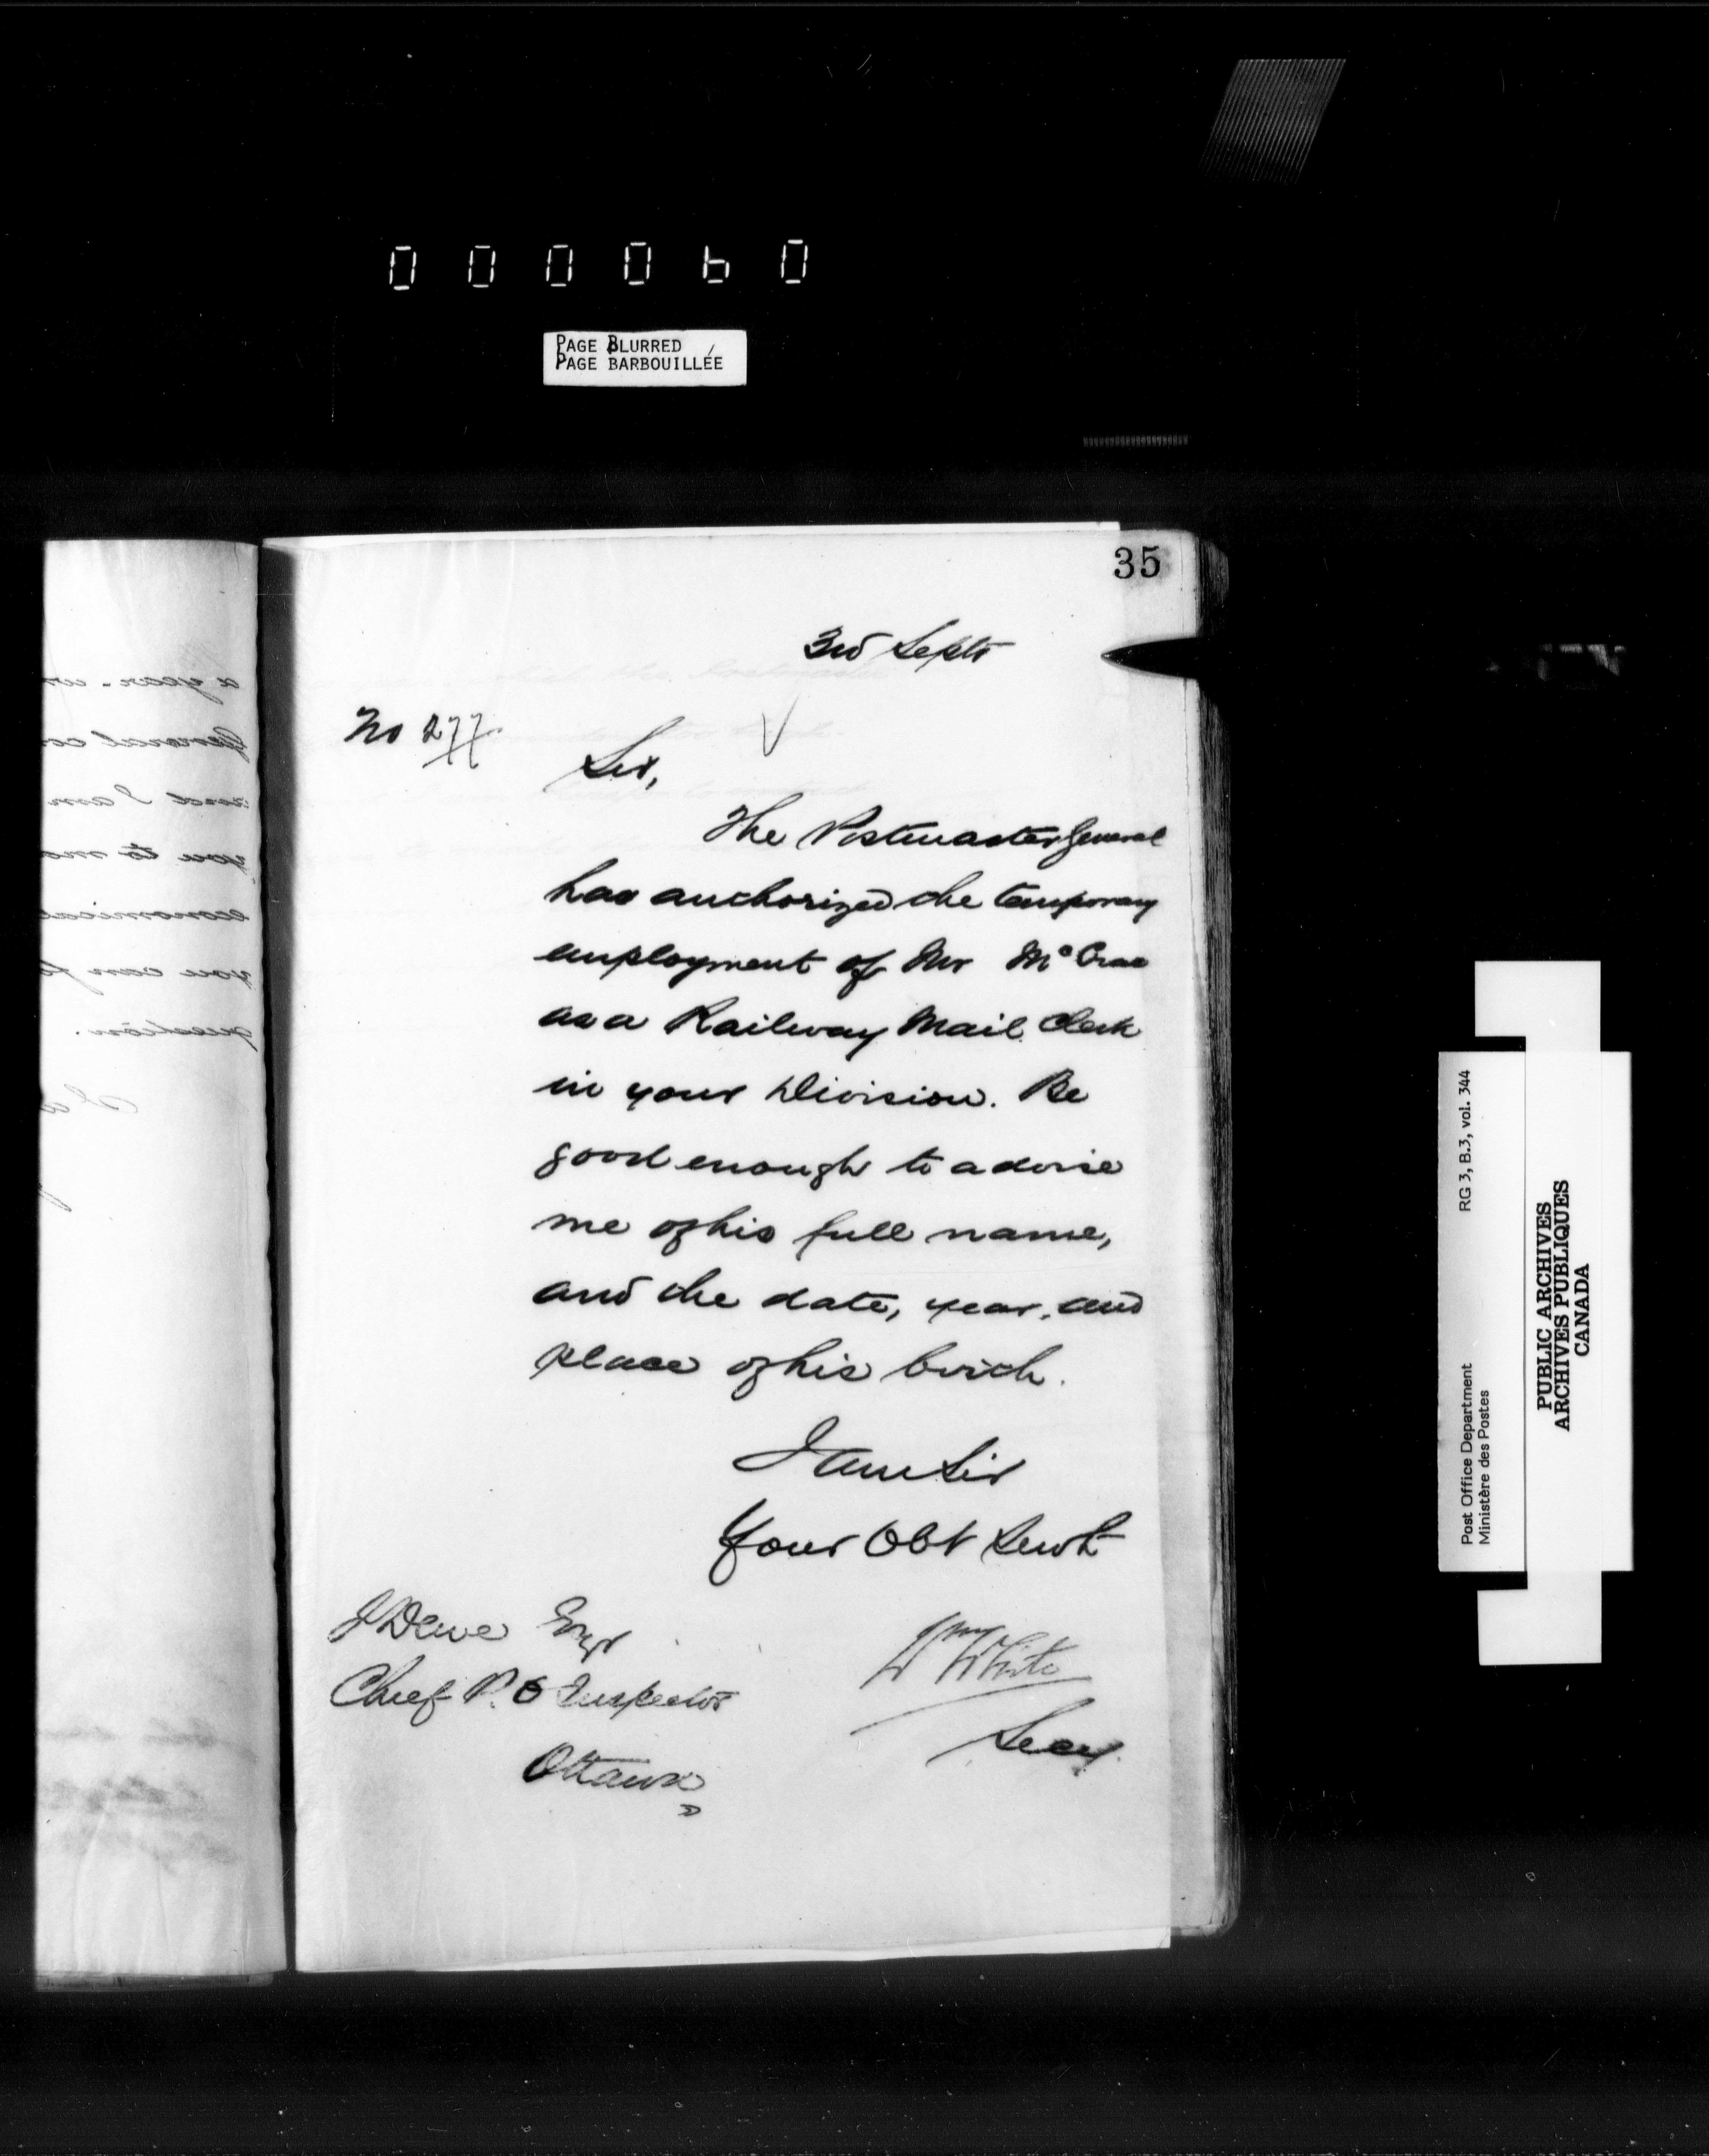 000060
PAGE BLURRED
PAGE BARBOUILLÉE
35
3rd Septr
No 277
Sir,
The Postmaster General
has authorized the temporary
employment of Mr McCrae
as a Railway Mail Clerk
in your Division. Be
good enough to advise
me of his full name,
and the date, year, and
place of his birth.
I am Sir
Your Obt Servt
J Dewe Esqr
Chief P. O Inspector
Ottawa
Wm White
Secy.
a year
General
and I am
you to
economical
you can
question.
Post Office Department RG 3, B.3, vol. 344
Ministère des Postes
PUBLIC ARCHIVES
ARCHIVES PUBLIQUES
CANADA